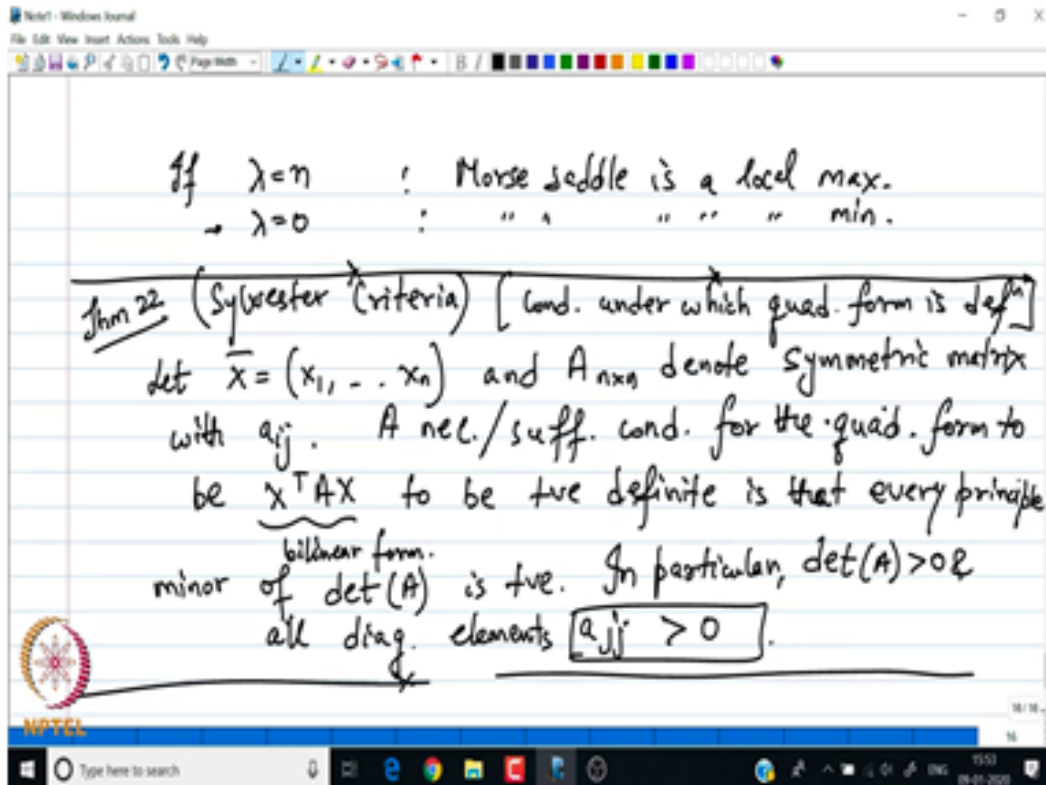 Note1 - Windows Journal
File Edit View Insert Actions Tools Help
Page Width
B I
If λ=n : Morse saddle is a local max.
λ=0 : " " " " " min.
Thm 22 (Sylvester Criteria) [Cond. under which quad. form is defⁿ]
Let X̄ = (x₁, - .. xₙ) and Aₙₓₙ denote symmetric matrix
with aᵢⱼ. A nec./suff. cond. for the quad. form to
be XᵀAX to be +ve definite is that every principle
bilinear form.
minor of det(A) is +ve. In particular, det(A) > 0 &
all diag. elements aⱼⱼ > 0.
NPTEL
16 / 16
16
Type here to search
ENG
15:53
09-01-2020